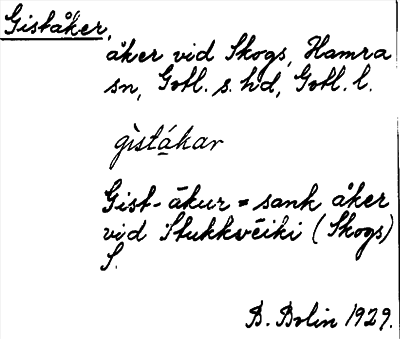 Giståker,
åker vid Skogs, Hamra
sn, Gotl. s. hd, Gotl. l.
gìstákar
Gist-ākur = sank åker
vid Stukkvēiki (Skogs)
S.
B. Bolin 1929.